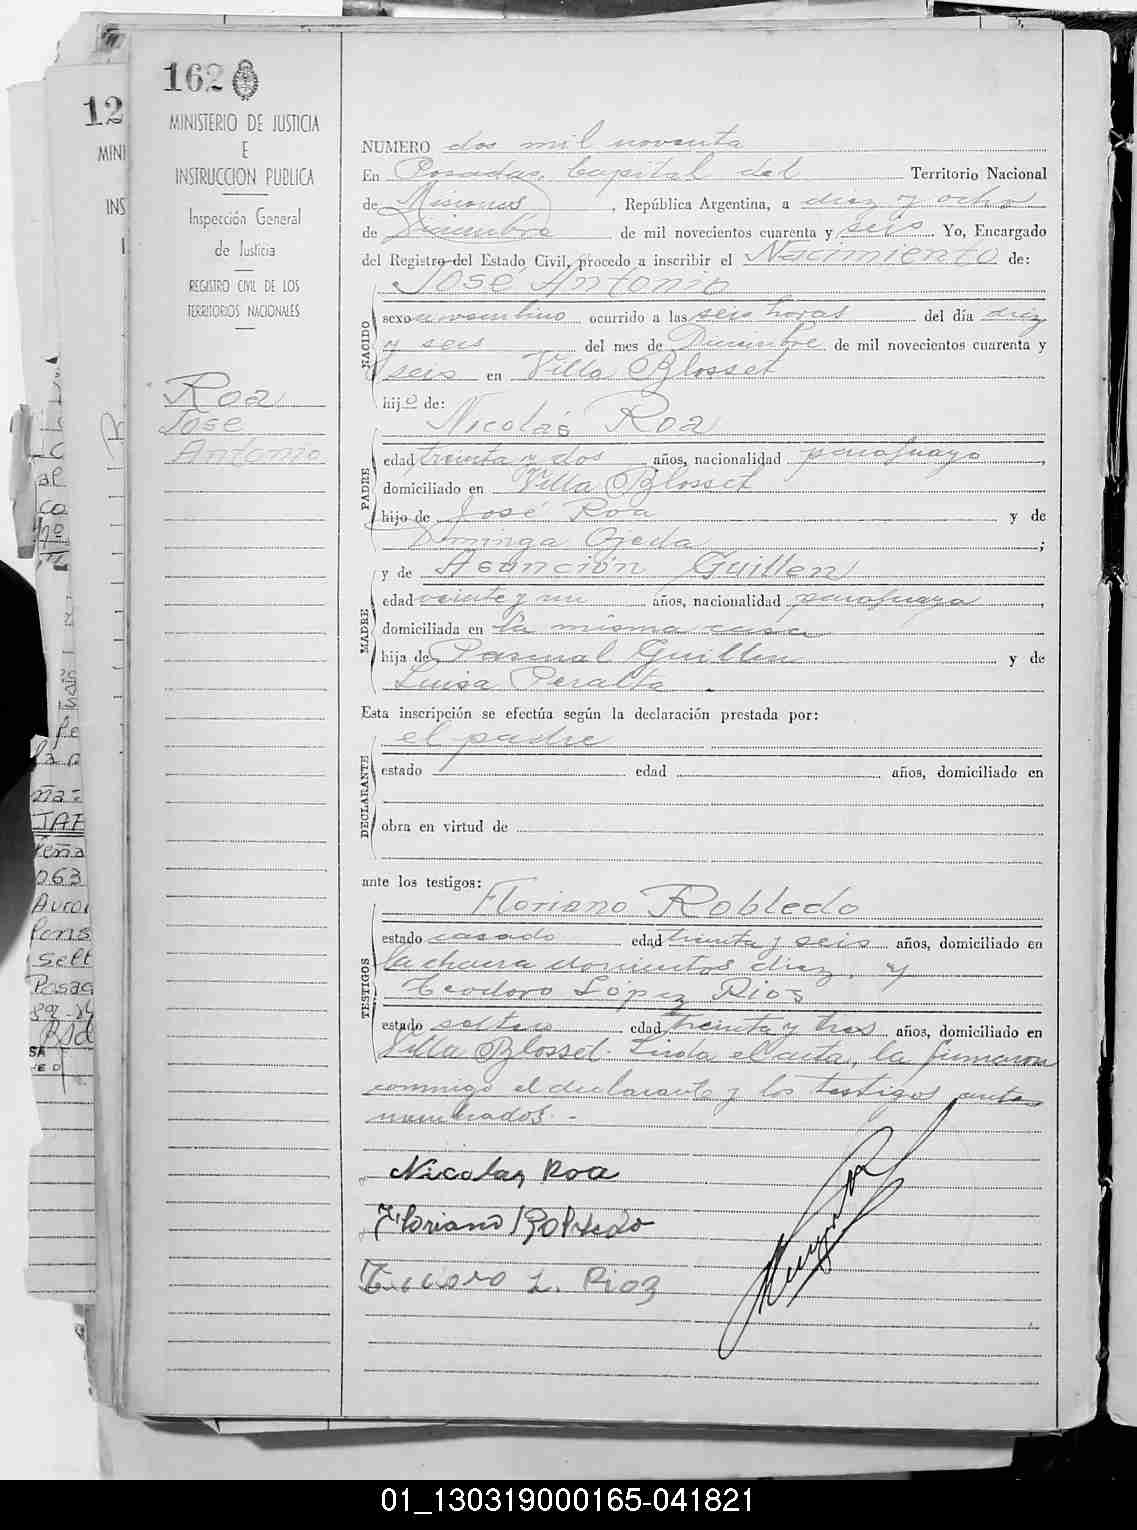 162
MINISTERIO DE JUSTICIA
E
INSTRUCCION PUBLICA
Inspección General
de Justicia
REGISTRO CIVIL DE LOS
TERRITORIOS NACIONALES
Roa
Jose
Antonio
12
MINI
INS
NUMERO dos mil noventa
En Posadas, Capital del Territorio Nacional
de Misiones, República Argentina, a diez y ocho
de Diciembre de mil novecientos cuarenta y seis. Yo, Encargado
del Registro del Estado Civil, procedo a inscribir el Nacimiento de:
José Antonio
NACIDO
sexo masculino ocurrido a las seis horas del día diez
y seis del mes de Diciembre de mil novecientos cuarenta y
seis en Villa Blosset
hijo de:
Nicolás Roa
PADRE
edad treinta y dos años, nacionalidad paraguaya,
domiciliado en Villa Blosset
hijo de José Roa y de
Dominga Ojeda;
y de Asunción Guillen
MADRE
edad veinte y un años, nacionalidad paraguaya,
domiciliada en la misma casa
hija de Pascual Guillen y de
Luisa Peralta.
Esta inscripción se efectúa según la declaración prestada por:
el padre
DECLARANTE
estado edad años, domiciliado en
obra en virtud de
ante los testigos:
Floriano Robledo
TESTIGOS
estado casado edad treinta y seis años, domiciliado en
la chacra doscientos diez, y
Teodoro López Rios
estado soltero edad treinta y tres años, domiciliado en
Villa Blosset. Leida el acta, la firmaron
conmigo el declarante y los testigos antes
nombrados.-
Nicolas Roa
Floriano Robledo
L. Rioz
01_130319000165-041821